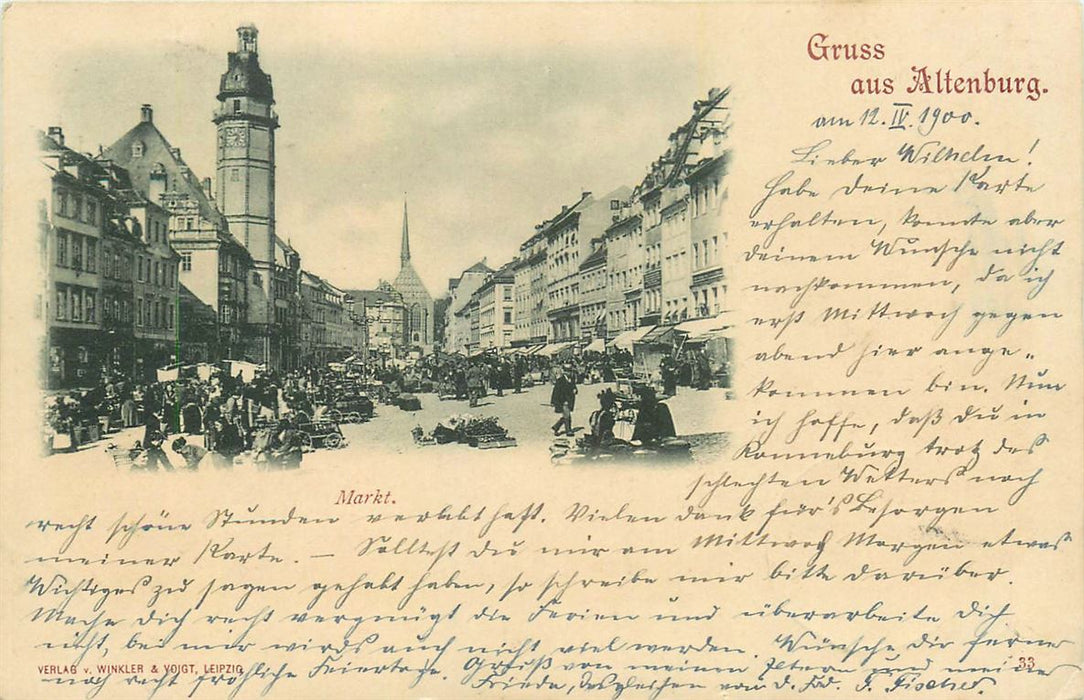 Gruss
aus Altenburg.
am 12. IV. 1900.
Lieber Wilhelm!
Habe Deine Karte
erhalten, konnte aber
Deinem Wunsche nicht
nachkommen, da ich
erst Mittwoch gegen
abend hier ange„
kommen bin. Nun
ich hoffe, daß Du in
Ronneburg trotz des
schlechten Wetters noch
Markt.
recht schöne Stunden verlebt hast. Vielen Dank für's Besorgen
meiner Karte. — Solltest Du mir am Mittwoch Morgen etwas
Wichtiges zu sagen gehabt haben, so schreibe mir bitte darüber.
Mache Dich recht vergnügt die Ferien und überarbeite Dich
nicht, bei mir wirds auch nicht viel werden. Wünsche Dir ferner
VERLAG v. WINKLER & VOIGT, LEIPZIG
33
noch recht fröhliche Feiertage. Gruß von meinen Eltern und meine
Frieda, desgleichen von D. F. Fischer